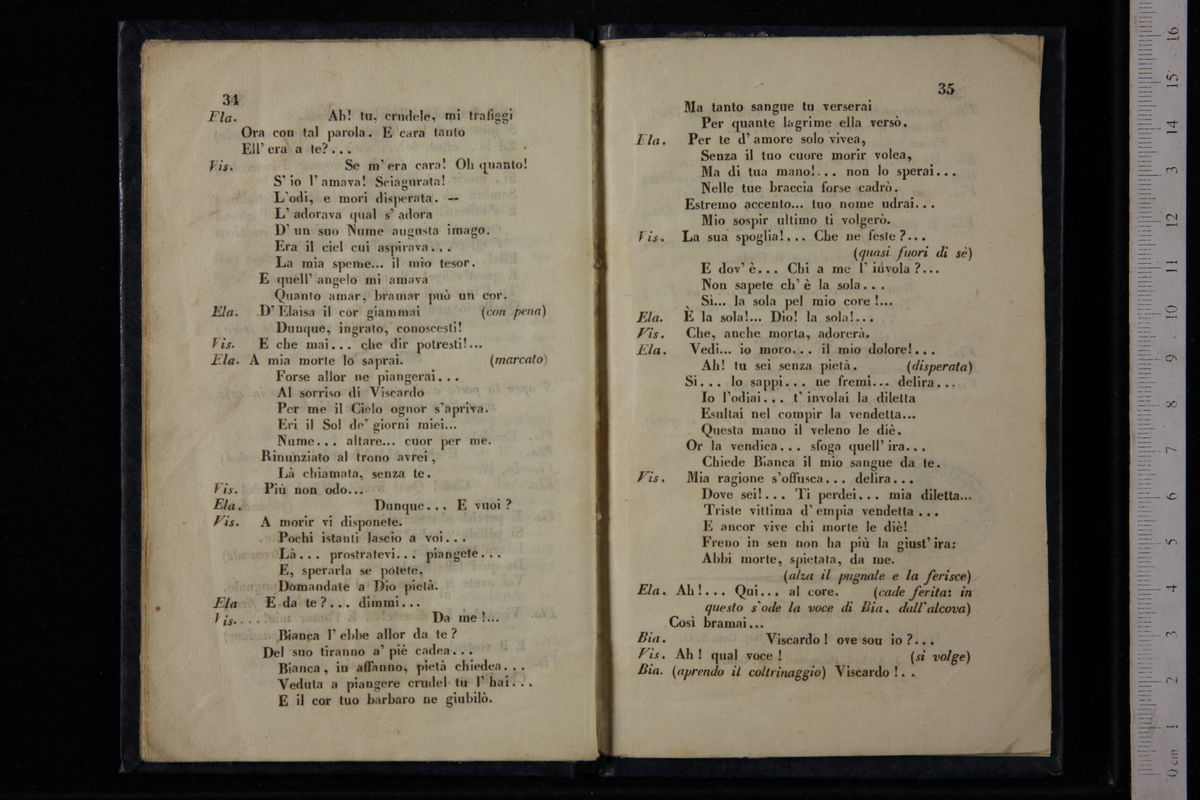 34
Ela. Ah! tu, crudele, mi trafiggi
Ora con tal parola. E cara tanto
Ell' era a te?...
Vis. Se m' era cara! Oh quanto!
S' io l' amava! Sciagurata!
L'odi, e mori disperata. —
L' adorava qual s' adora
D' un suo Nume augusta imago.
Era il ciel cui aspirava...
La mia speme... il mio tesor.
E quell' angelo mi amava
Quanto amar, bramar può un cor.
Ela. D' Elaisa il cor giammai (con pena)
Dunque, ingrato, conoscesti!
Vis. E che mai... che dir potresti!...
Ela. A mia morte lo saprai. (marcato)
Forse allor ne piangerai...
Al sorriso di Viscardo
Per me il Cielo ognor s'apriva.
Eri il Sol de' giorni miei...
Nume... altare... cuor per me.
Rinunziato al trono avrei,
Là chiamata, senza te.
Vis. Più non odo...
Ela. Dunque... E vuoi?
Vis. A morir vi disponete.
Pochi istanti lascio a voi...
Là... prostratevi... piangete...
E, sperarla se potete,
Domandate a Dio pietà.
Ela E da te?... dimmi...
Vis. Da me!...
Bianca l' ebbe allor da te?
Del suo tiranno a' piè cadea...
Bianca, in affanno, pietà chiedea...
Veduta a piangere crudel tu l' hai...
E il cor tuo barbaro ne giubilò.
35
Ma tanto sangue tu verserai
Per quante lagrime ella versò.
Ela. Per te d' amore solo vivea,
Senza il tuo cuore morir volea,
Ma di tua mano!... non lo sperai...
Nelle tue braccia forse cadrò.
Estremo accento... tuo nome udrai...
Mio sospir ultimo ti volgerò.
Vis. La sua spoglia!... Che ne feste?...
(quasi fuori di sè)
E dov' è... Chi a me l' invola?...
Non sapete ch' è la sola...
Sì... la sola pel mio core!...
Ela. È la sola!... Dio! la sola!...
Vis. Che, anche morta, adorerà.
Ela. Vedi... io moro... il mio dolore!...
Ah! tu sei senza pietà. (disperata)
Sì... lo sappi... ne fremi... delira...
Io l'odiai... t' involai la diletta
Esultai nel compir la vendetta...
Questa mano il veleno le diè.
Or la vendica... sfoga quell' ira...
Chiede Bianca il mio sangue da te.
Vis. Mia ragione s'offusca... delira...
Dove sei!... Ti perdei... mia diletta...
Triste vittima d' empia vendetta...
E ancor vive chi morte le diè!
Freno in sen non ha più la giust' ira:
Abbi morte, spietata, da me.
(alza il pugnale e la ferisce)
Ela. Ah!... Qui... al core. (cade ferita: in
questo s'ode la voce di Bia. dall'alcova)
Così bramai...
Bia. Viscardo! ove son io?...
Vis. Ah! qual voce! (si volge)
Bia. (aprendo il coltrinaggio) Viscardo!..
0 cm 1 2 3 4 5 6 7 8 9 10 11 12 13 14 15 16